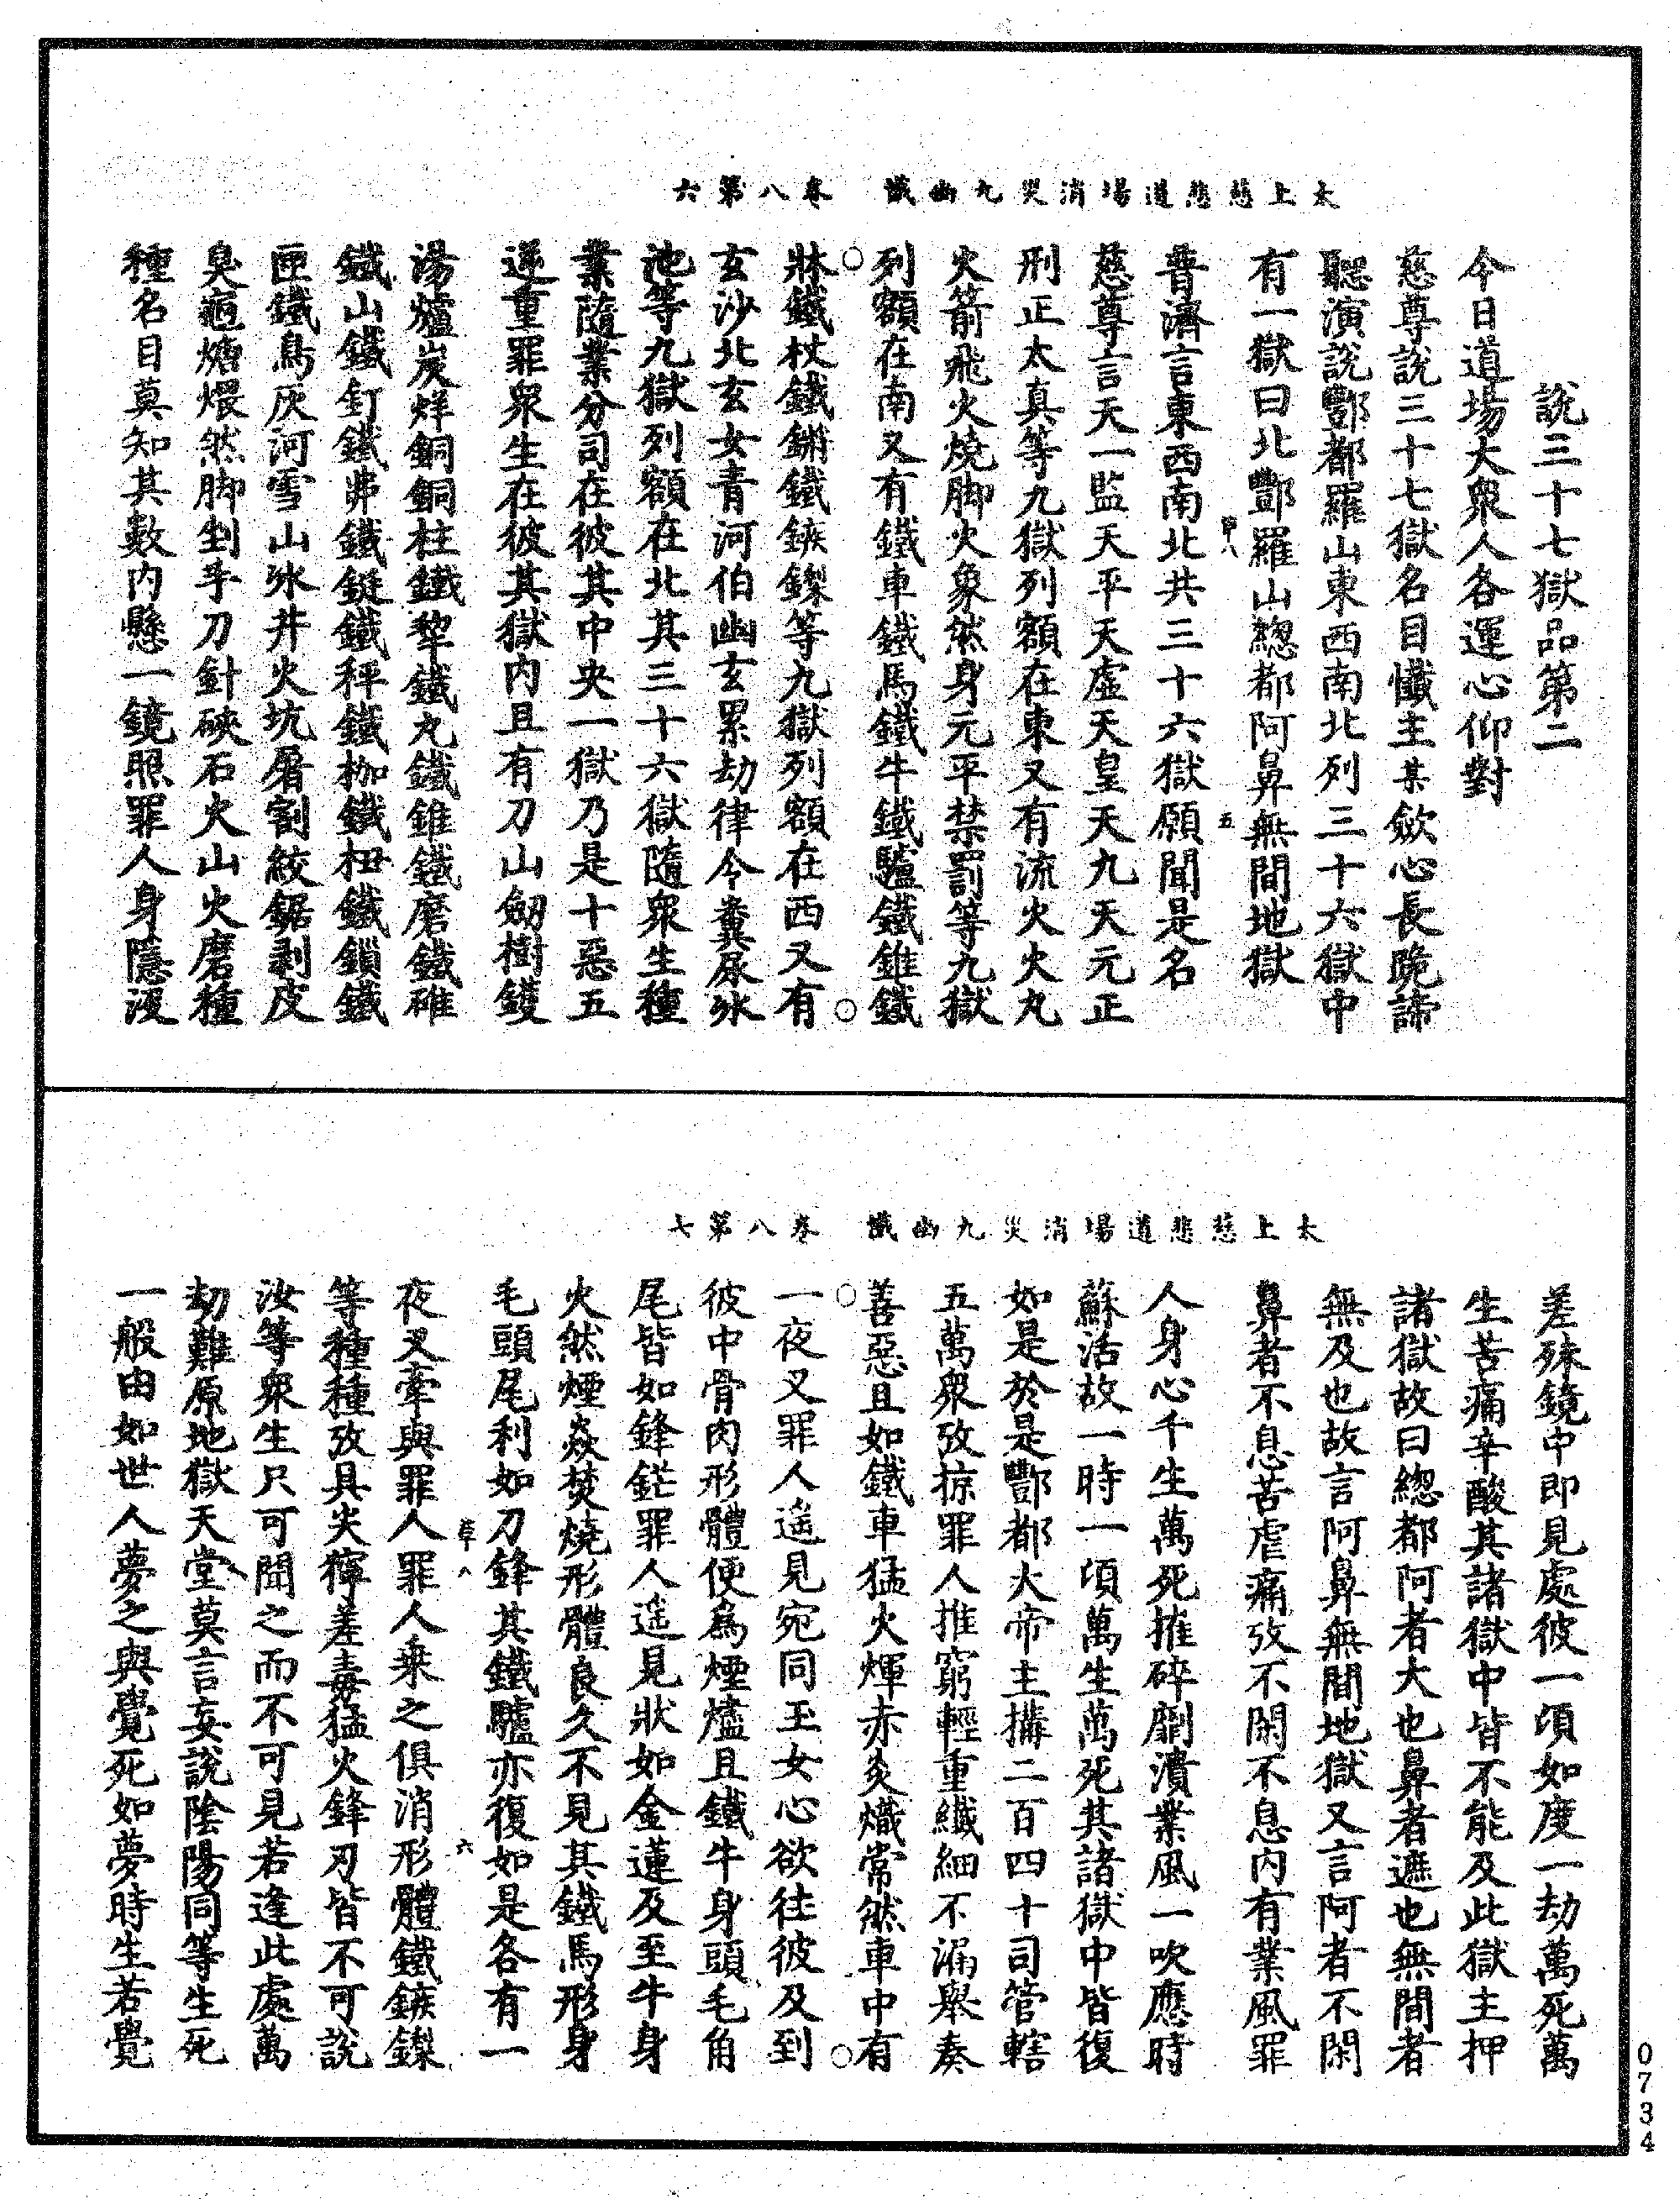 太上慈悲道場消災九幽懺　卷八第六
說三十七獄品第二
今日道場大衆人各運心仰對
慈尊說三十七獄名目懺主某斂心長跪諦
聽演說酆都羅山東西南北列三十六獄中
有一獄曰北酆羅山總都阿鼻無間地獄
五
普濟言東西南北共三十六獄願聞是名
慈尊言天一監天平天虛天皇天九天元正
刑正太真等九獄列額在東又有流火火丸
火箭飛火燒脚火象然身元平禁罰等九獄
列額在南又有鐵車鐵馬鐵牛鐵驢鐵錐鐵
牀鐵杖鐵鏘鐵鏃鏫等九獄列額在西又有
玄沙北玄女青河伯幽玄累劫律令糞尿冰
池等九獄列額在北其三十六獄隨衆生種
業隨業分司在彼其中央一獄乃是十惡五
逆重罪衆生在彼其獄內且有刀山劒樹鑊
湯爐炭烊銅銅柱鐵犂鐵丸鐵錐鐵磨鐵碓
鐵山鐵釘鐵弗鐵鋌鐵秤鐵枷鐵杻鐵鎖鐵
匣鐵鳥灰河雪山冰井火坑屠割絞鋸剥皮
臭𤬪煻煨然脚剉手刀針硤石火山火磨種
種名目莫知其數内懸一鏡照罪人身隱没
太上慈悲道場消災九幽懺　卷八第七
差殊鏡中即見處彼一頃如度一劫萬死萬
生苦痛辛酸其諸獄中皆不能及此獄主押
諸獄故曰總都阿者大也鼻者遮也無間者
無及也故言阿鼻無間地獄又言阿者不閑
鼻者不息苦虐痛攷不閑不息内有業風罪
人身心千生萬死摧碎𦠿潰業風一吹應時
蘇活故一時一頃萬生萬死其諸獄中皆復
如是於是酆都大帝主攝二百四十司管轄
五萬衆攷掠罪人推窮輕重纖細不漏舉奏
善惡且如鐵車猛火燀赤炎熾常然車中有
一夜叉罪人遥見宛同玉女心欲往彼及到
彼中骨肉形體便爲煙燼且鐵牛身頭毛角
尾皆如鋒鋩罪人遥見狀如金蓮及至牛身
火然煙焱焚燒形體良久不見其鐵馬形身
毛頭尾利如刀鋒其鐵驢亦復如是各有一
六
夜叉牽與罪人罪人乘之俱消形體鐵鏃鏫
等種種攷具尖獰差毒猛火鋒刃皆不可說
汝等衆生只可聞之而不可見若逢此處萬
劫難原地獄天堂莫言妄說陰陽同等生死
一般由如世人夢之與覺死如夢時生若覺
0734